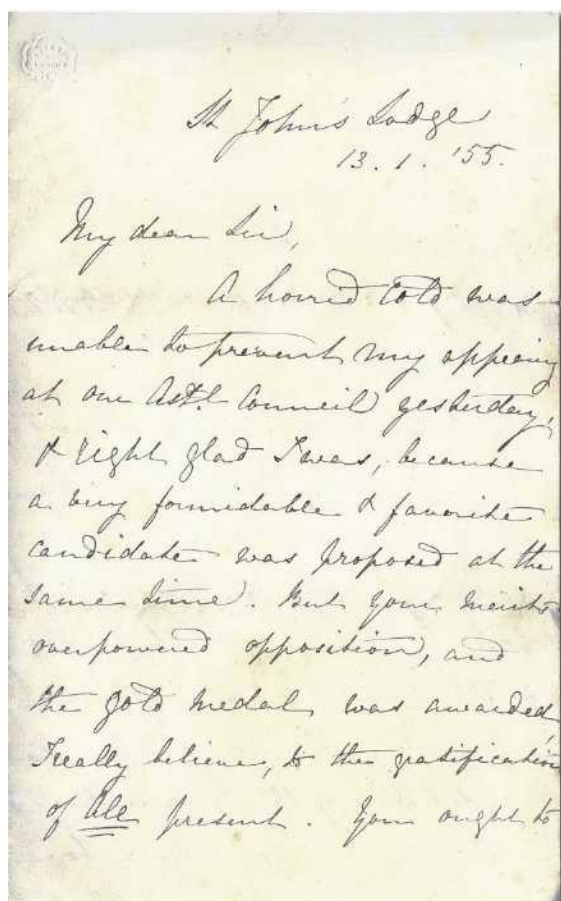 St John's Lodge
13. 1. '55.
My dear Sir,
A horrid cold was
unable to prevent my appearing
at our Astl. Council yesterday,
& right glad I was, because
a very formidable & favorite
candidate was proposed at the
same time. But your merits
overpowered opposition, and
the gold medal was awarded,
I really believe, to the gratification
of All present. You ought to